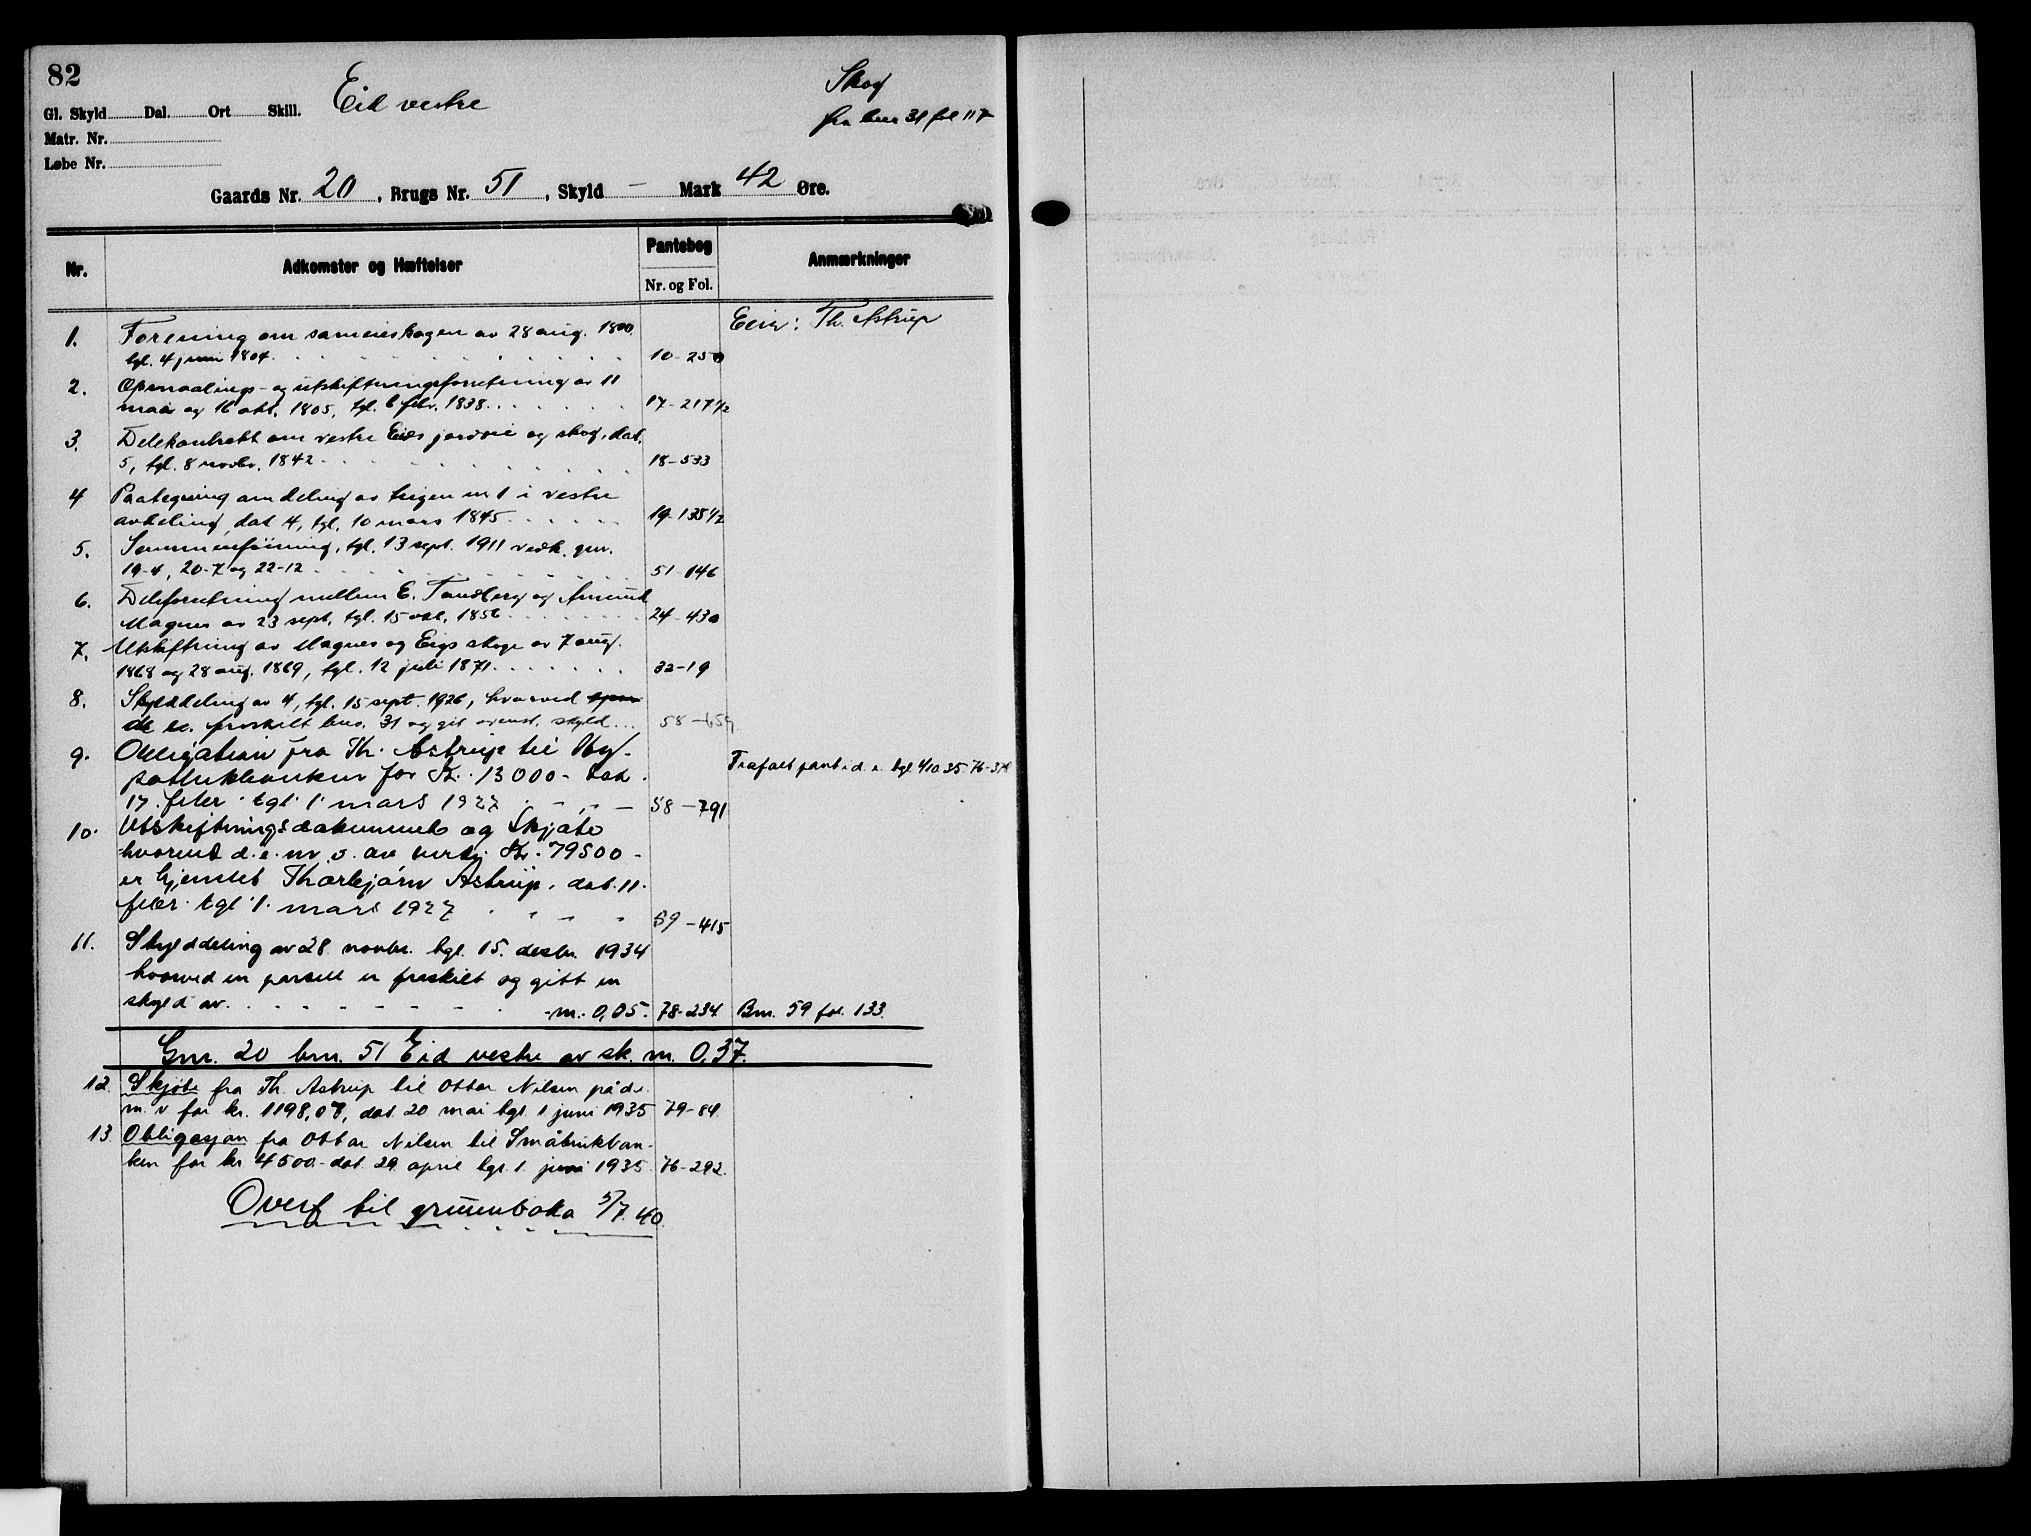 82
Gl. Skyld Dal. Ort Skill. Eid vestre
Skog
fra bnr 31 fol 117
Matr. Nr.
Løbe Nr.
Gaards Nr. 20, Brugs Nr. 51, Skyld – Mark 42 Øre.
Nr. Adkomster og Hæftelser Pantebog Nr. og Fol. Anmærkninger
Eier: Th. Astrup
1. Forening om sameieskogen av 28 aug. 1800.
tgl. 4 juni 1804. 10-250
2. Opmaalings- og utskiftningsforretning av 11
mai og 16 okt. 1805, tgl. 6 febr. 1838. 17-217 1/2
3. Delekontrakt om vestre Eids jordvei og skog, dat.
5, tgl. 8 novbr. 1842 18-533
4 Paategning om deling av teigen nr 1 i vestre
avdeling, dat 4, tgl. 10 mars 1845. 19-135 1/2
5. Sammenføining, tgl. 13 sept. 1911 vedk. gnr.
19-4, 20-7 og 22-12 51-146
6. Deleforretning mellem E. Tandberg og Amund
Magnes av 23 sept, tgl. 15 okt. 1856 24-430
7. Utskiftning av Magnes og Eigs skoge av 7 aug.
1868 og 28 aug. 1869, tgl. 12 juli 1871. 32-19
8. Skylddeling av 4, tgl. 15 sept. 1926, hvorved
de er fraskilt bnr. 31 og git ovenst. skyld... 58-659
9. Obligation fra Th. Astrup til Hy-
potekbanken for Kr. 13000- dat.
17. febr. tgl. 1. mars 1927 58-791
Frafalt pant i d. e. tgl. 4/10 35. 76-371
10. Utskiftningsdokument og Skjøte
hvorved d. e. m. v. av verdi Kr. 79500-
er hjemlet Thorbjørn Astrup, dat. 11.
febr. tgl. 1. mars 1927 59-415
11. Skylddeling av 28. novbr. tgl. 15. desbr. 1934
hvorved en parsell er fraskilt og gitt en
skyld av. m. 0,05. 78-234. Bnr. 59 fol. 133.
Gnr. 20 bnr. 51 Eid vestre av sk. m. 0,37.
12. Skjøte fra Th. Astrup til Ottar Nilsen på d. e.
m. v for kr. 1198,07, dat. 20 mai tgl. 1 juni 1935 79-84.
13. Obligasjon fra Ottar Nilsen til Småbrukban-
ken for kr 4500.- dat. 29. april tgl. 1. juni 1935. 76-292.
Overf til grunnboka 5/7.40.